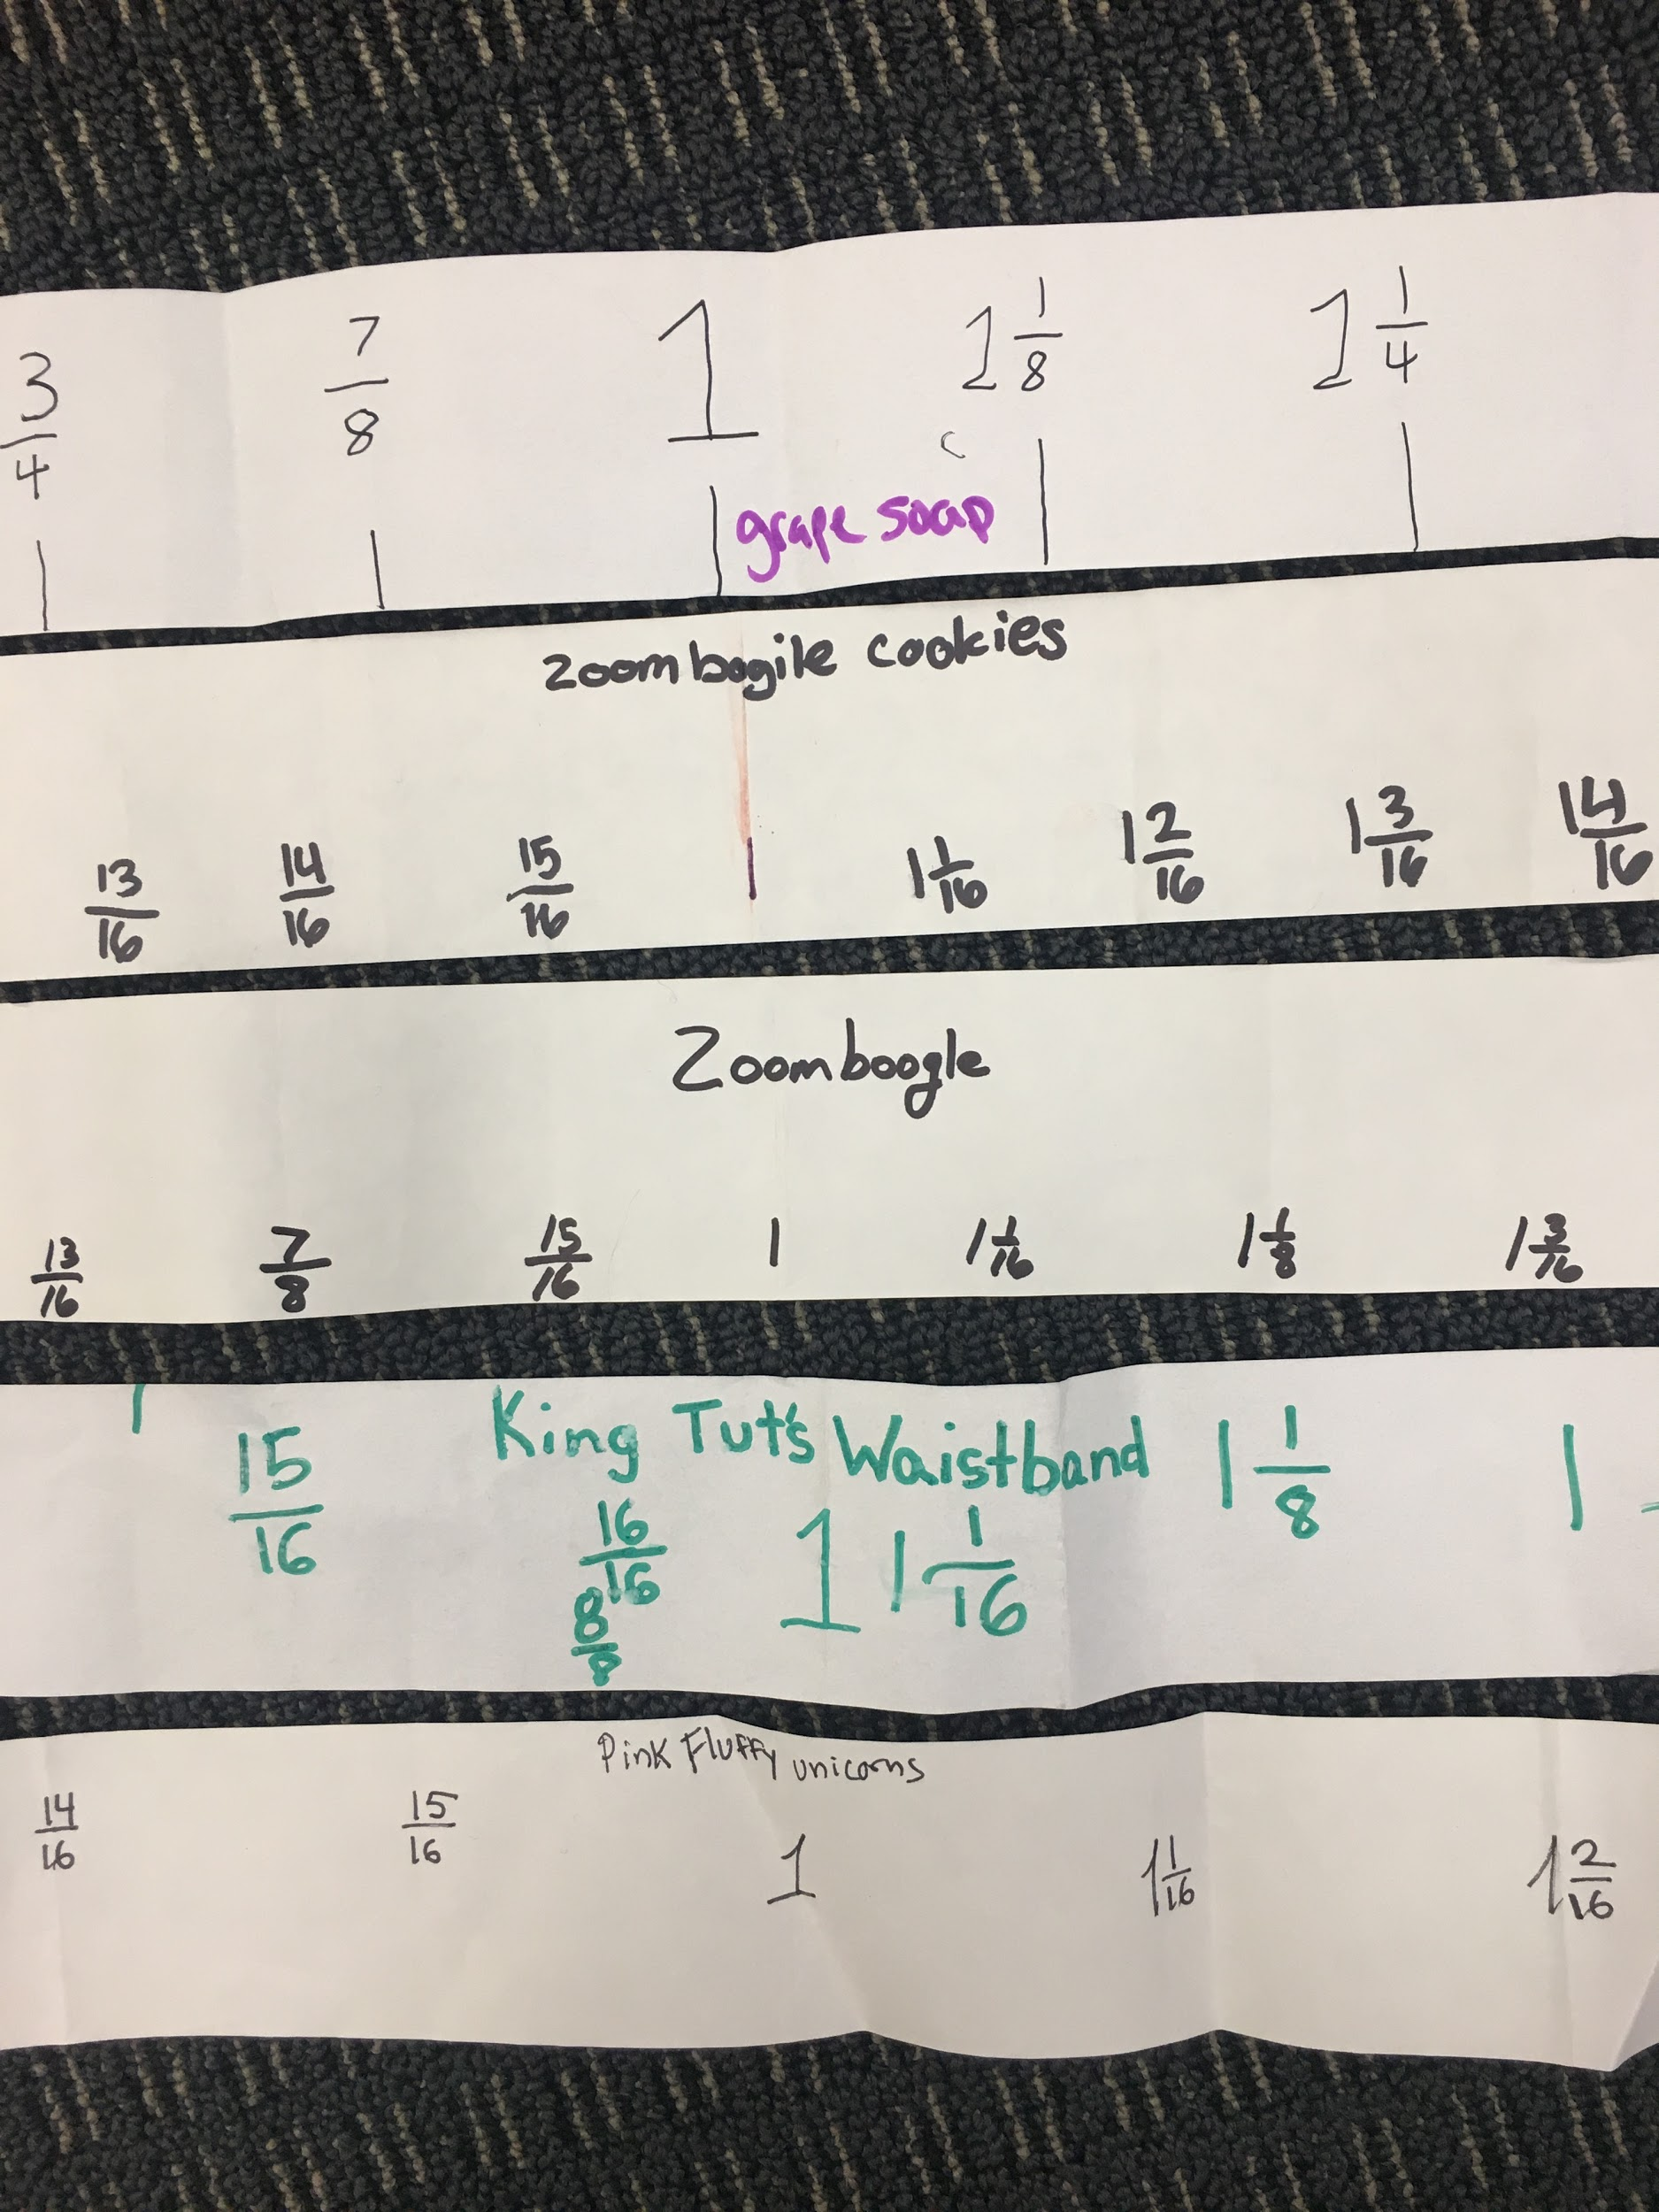 3/4 7/8 1 1 1/8 1 1/4
grape soap
zoombogile cookies
13/16 14/16 15/16 1 1 1/16 1 2/16 1 3/16 1 4/16
Zoomboogle
13/16 7/8 15/16 1 1 1/16 1 1/8 1 3/16
King Tut's Waistband
15/16 16/16 8/8 1 1 1/16 1 1/8 1
Pink Fluffy unicorns
14/16 15/16 1 1 1/16 1 2/16